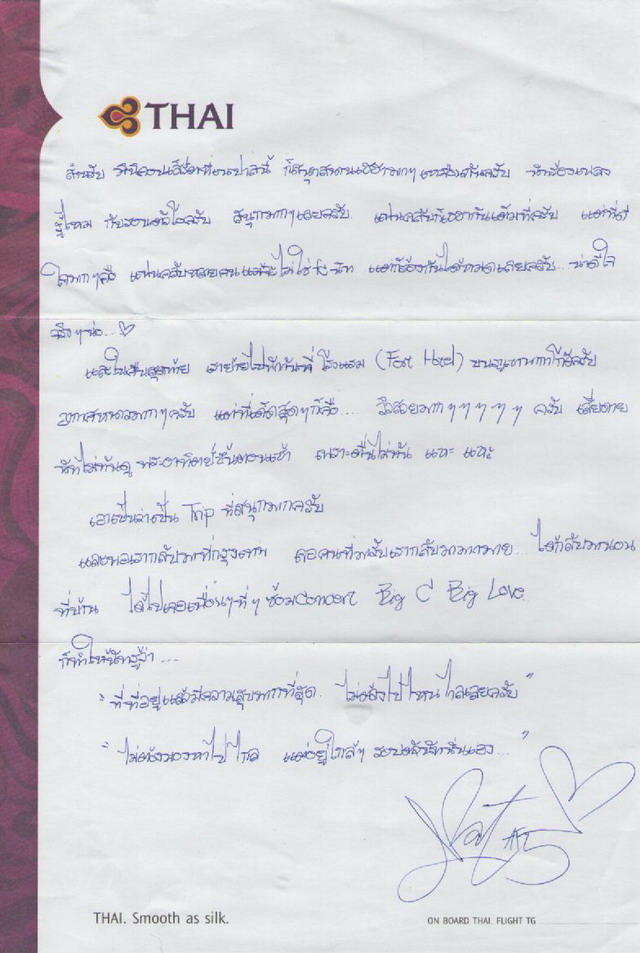 THAI
สำหรับ มินิคอนเสิร์ตที่ ก็สนุกสนานเฮฮามากๆ เหมือนกันครับ นักร้องเพลง
กับ ครับ สนุกมากๆเลยครับ แฟนคลับ กันเต็มที่ครับ แต่ที่ดี
ใจมากๆคือ แฟนคลับหลายคนแม้จะไม่ใช่ แต่ก็ร้องกันได้หมดเลยครับ... น่าดีใจ
จริงๆน่ะ...
และในวันสุดท้าย เราย้ายไปพักกันที่ โรงแรม ( Hotel) บนภูเขา ครับ
อากาศหนาวมากๆครับ แต่ที่เด็ดสุดๆก็คือ.... วิวสวยมากๆๆๆๆๆ ครับ เสียดาย
นัทไม่ทันดู พระอาทิตย์ขึ้นตอนเช้า เพราะตื่นไม่ทัน แหะ แหะ
เอาเป็นว่าเป็น Trip ที่สนุกมากครับ
และพอเรากลับมาที่กรุงเทพ เจอคนที่มารับเรากลับมามากมาย... ได้กลับมานอน
ที่บ้าน ได้ไปเจอเพื่อนๆพี่ๆ ซ้อมconcert Big C Big Love
ก็ทำให้นัทรู้ว่า...
"ที่ที่อยู่แล้วมีความสุขมากที่สุด.. ไม่ต้องไปไหนไกลเลยครับ"
"ไม่ต้องมองหาไปไกล แต่อยู่ใกล้ๆ รอบตัวนัทนั่นเอง..."
Nat AF5
THAI. Smooth as silk.
ON BOARD THAI. FLIGHT TG